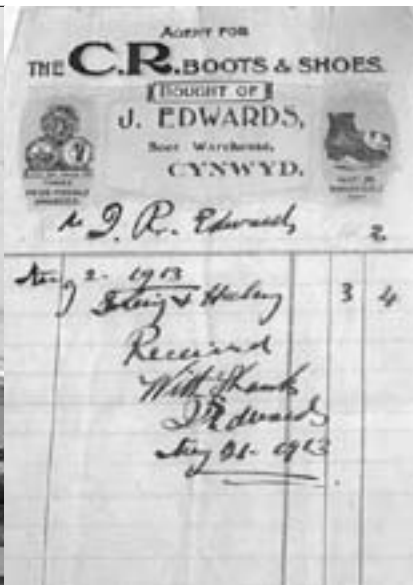 AGENT FOR
THE C.R. BOOTS & SHOES.
BOUGHT OF
J. EDWARDS,
Boot Warehouse,
CYNWYD.
R. Edwards
Aug 2 - 1913
& Heeling 3 4
Received
With Thanks
J Edwards
Aug 21 - 1913